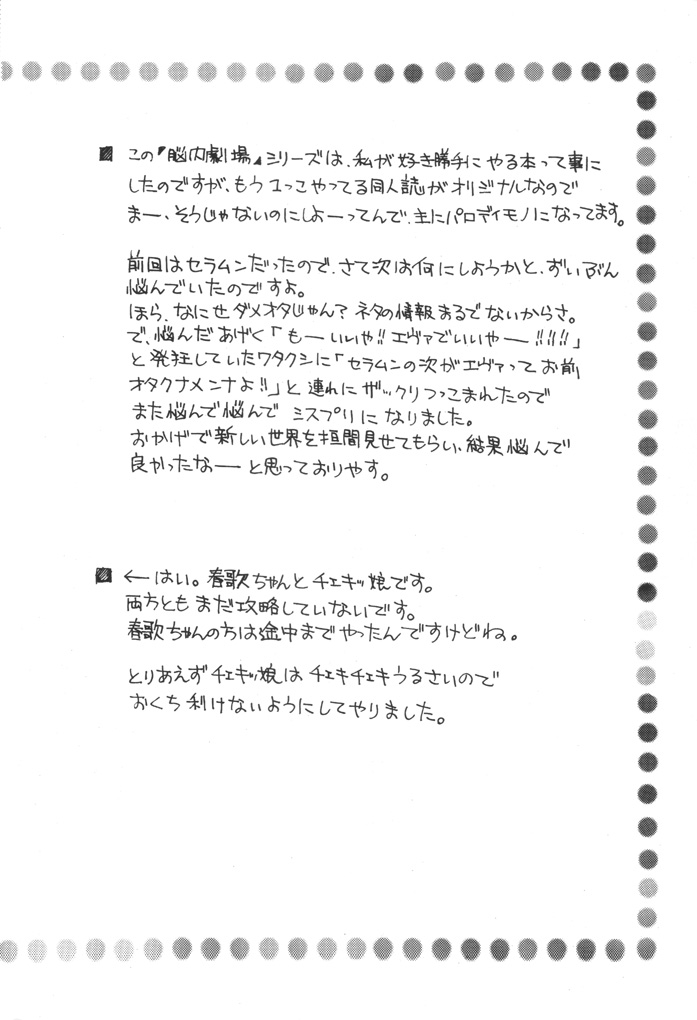 ■ この『脳内劇場』シリーズは、私が好き勝手にやる本って事に
したのですが、もう1っこやってる同人誌がオリジナルなので
まー、そうじゃないのにしよーってんで、主にパロディモノになってます。
前回はセラムンだったので、さて次は何にしようかと、ずいぶん
悩んでいたのですよ。
ほら、なにせダメオタじゃん?ネタの情報まるでないからさ。
で、悩んだあげく「もーいいや!!エヴァでいいやー!!!!」
と発狂していたワタクシに「セラムンの次がエヴァってお前
オタクナメンナよ!!」と連れにザックリつっこまれたので
また悩んで悩んで ミスプリになりました。
おかげで新しい世界を垣間見せてもらい、結果悩んで
良かったなーと思っておりやす。
■ ←はい。春歌ちゃんとチェキッ娘です。
両方ともまだ攻略していないです。
春歌ちゃんの方は途中までやったんですけどね。
とりあえずチェキッ娘はチェキチェキうるさいので
おくち利けないようにしてやりました。